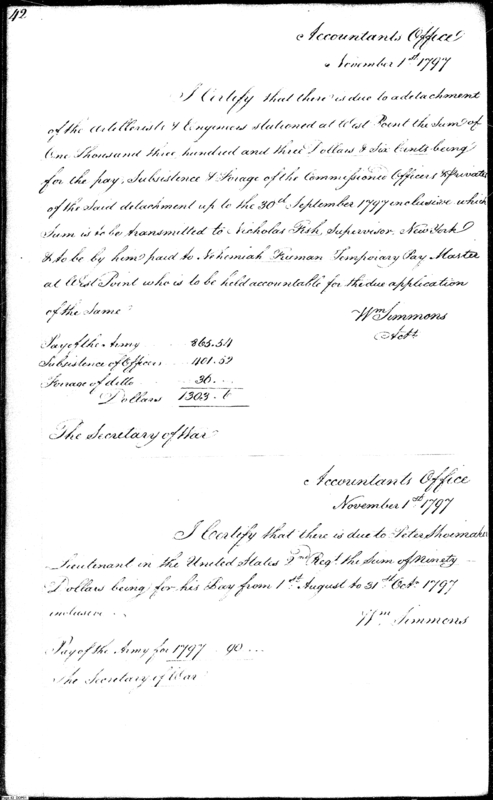 42
Accountants Office
November 1st 1797
I Certify that there is due to a detachment
of the Artillerists & Engineers stationed at West Point the Sum of
One Thousand three hundred and three Dollars & Six Cents being
for the pay, Subsistence & Forage of the Commissioned Officers & privates
of the Said detachment up to the 30th September 1797 inclusive which
Sum is to be transmitted to Nicholas Fish, Supervisor, New York
& to be by him paid to Nehemiah Freeman Temporary Pay Master
at West Point who is to be held accountable for the due application
of the Same
Wm Simmons
Actt
Pay of the Army 865.54
Subsistence of Officers 401.52
Forage of ditto 36 ...
Dollars 1303.6
The Secretary of War
Accountants Office
November 1st 1797
I Certify that there is due to Peter Shoemaker
Lieutenant in the United States 2nd Regt the Sum of Ninety
Dollars being for his Pay from 1st August to 31st Octr 1797
inclusive
Wm Simmons
Pay of the Army for 1797 90 ...
The Secretary of War